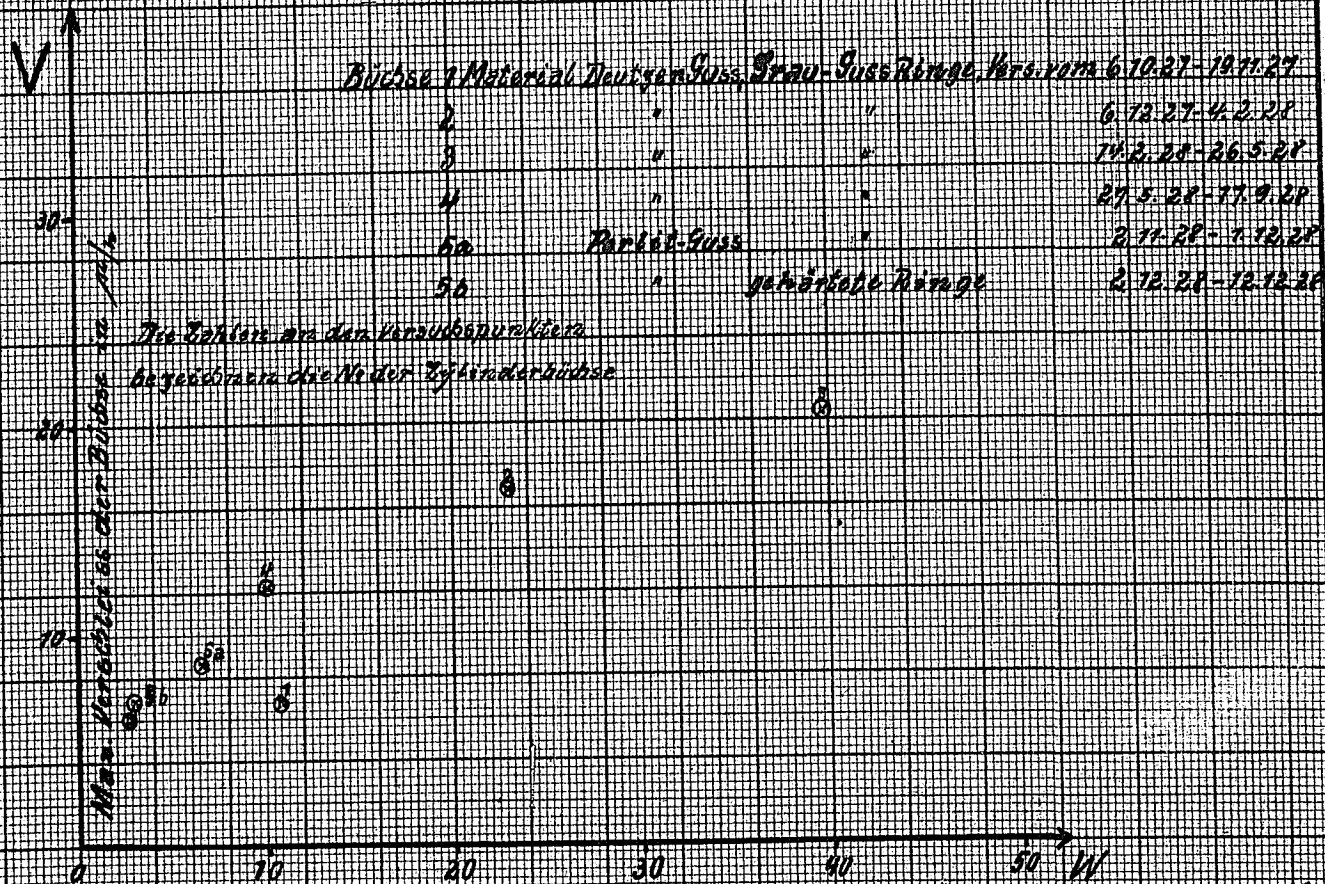 V
Büchse 1 Material Deutzer Guss, Grau-Guss Ringe, Vers. vom 6.10.27-19.11.27
2 " " 6.12.27-4.2.28
3 " " 14.2.28-26.5.28
4 " " 27.5.28-17.9.28
5a Perlit-Guss " 2.11.28-1.12.28
5b " gehärtete Ringe 2.12.28-12.12.28
Die Zahlen an den Versuchspunkten
bezeichnen die No der Zylinderbüchse
Max. Verschleiss der Büchse in µ/h
30
20
10
3
2
4
5a
5b
1
0 10 20 30 40 50 W